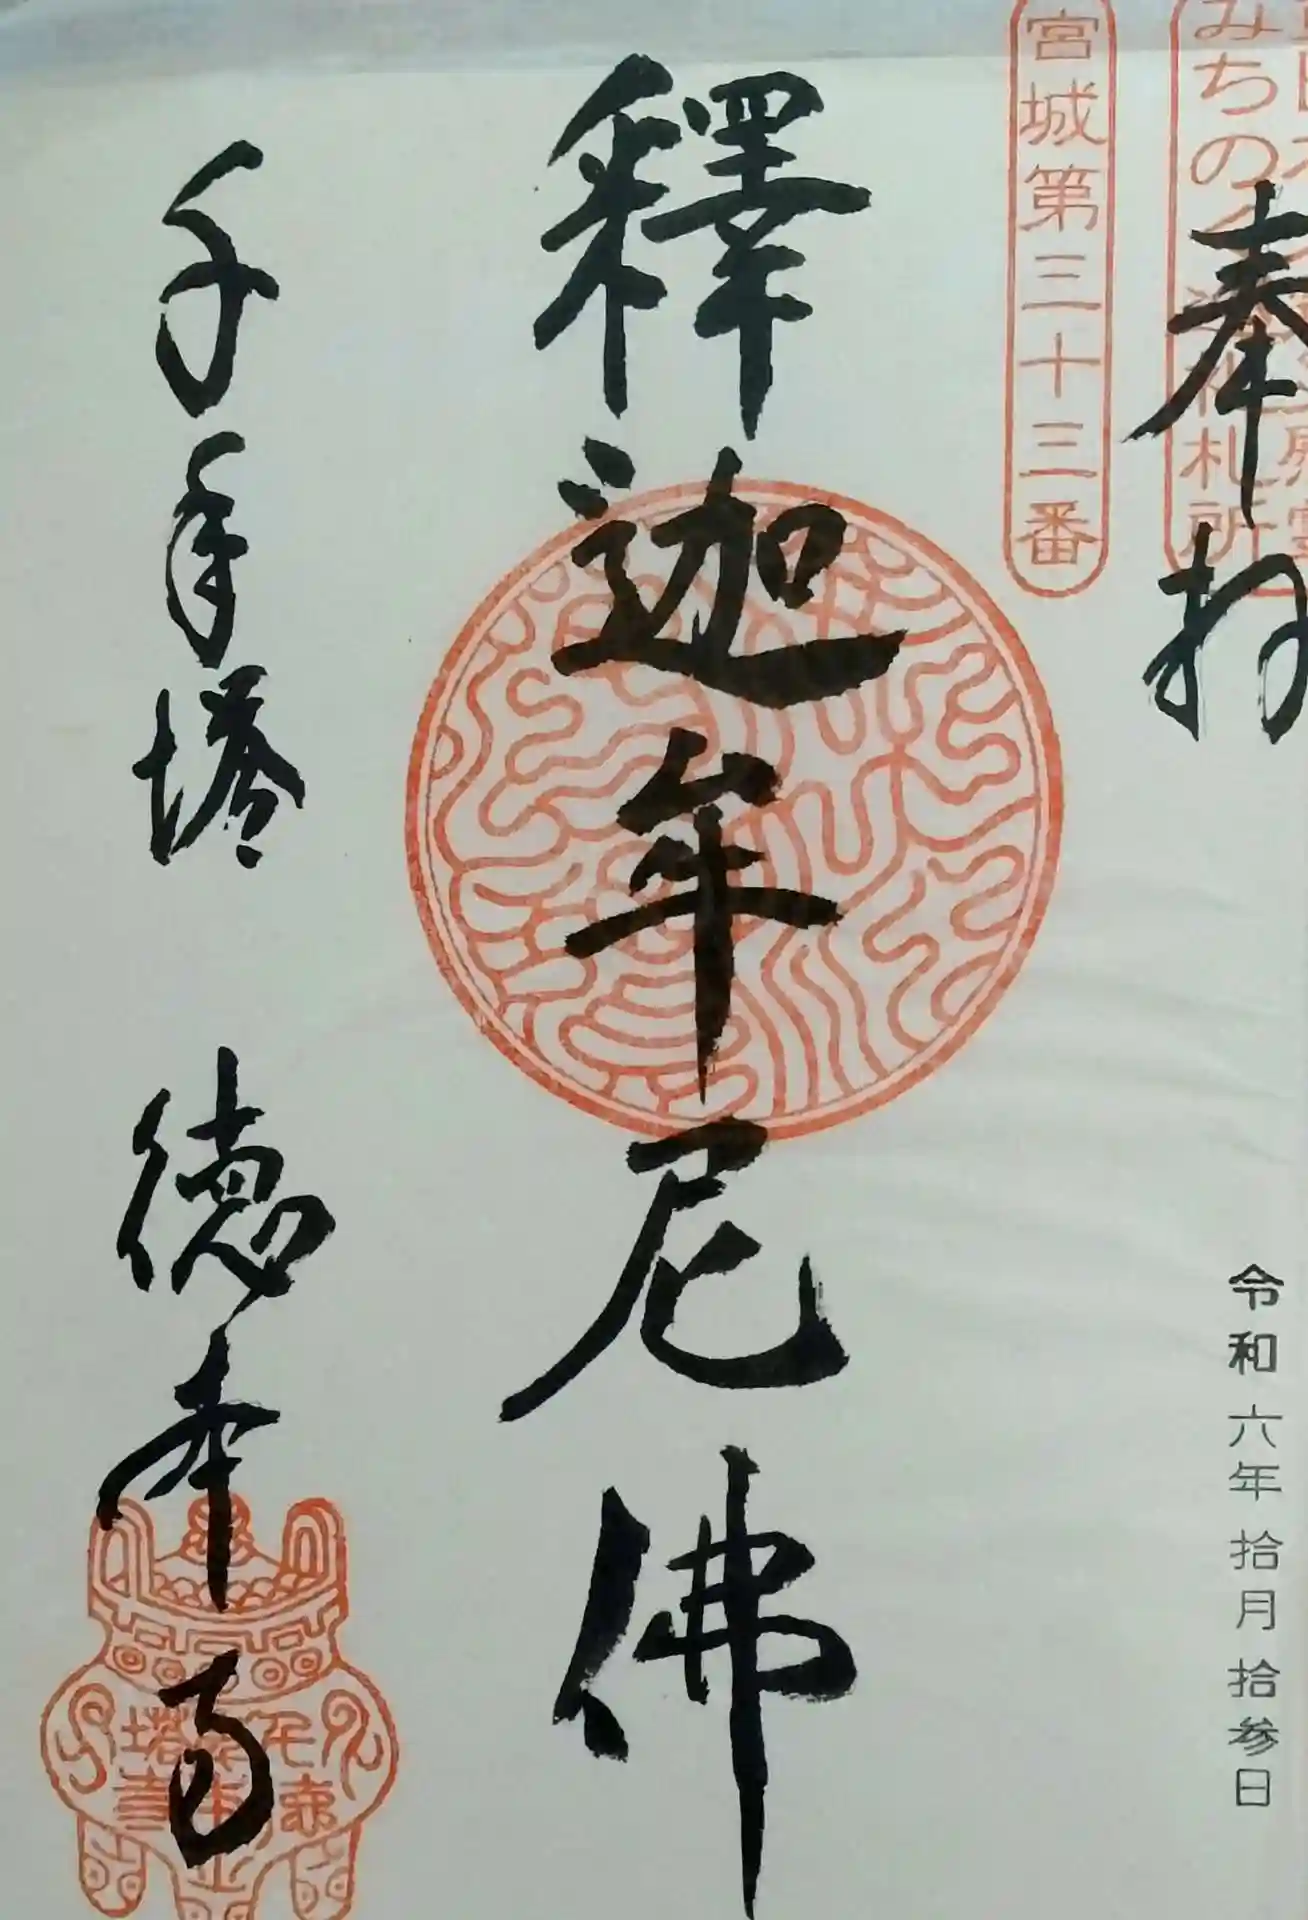 みちのく巡礼札所
奉拝
宮城第三十三番
令和六年拾月拾参日
釋迦牟尼佛
千手塔 徳本寺